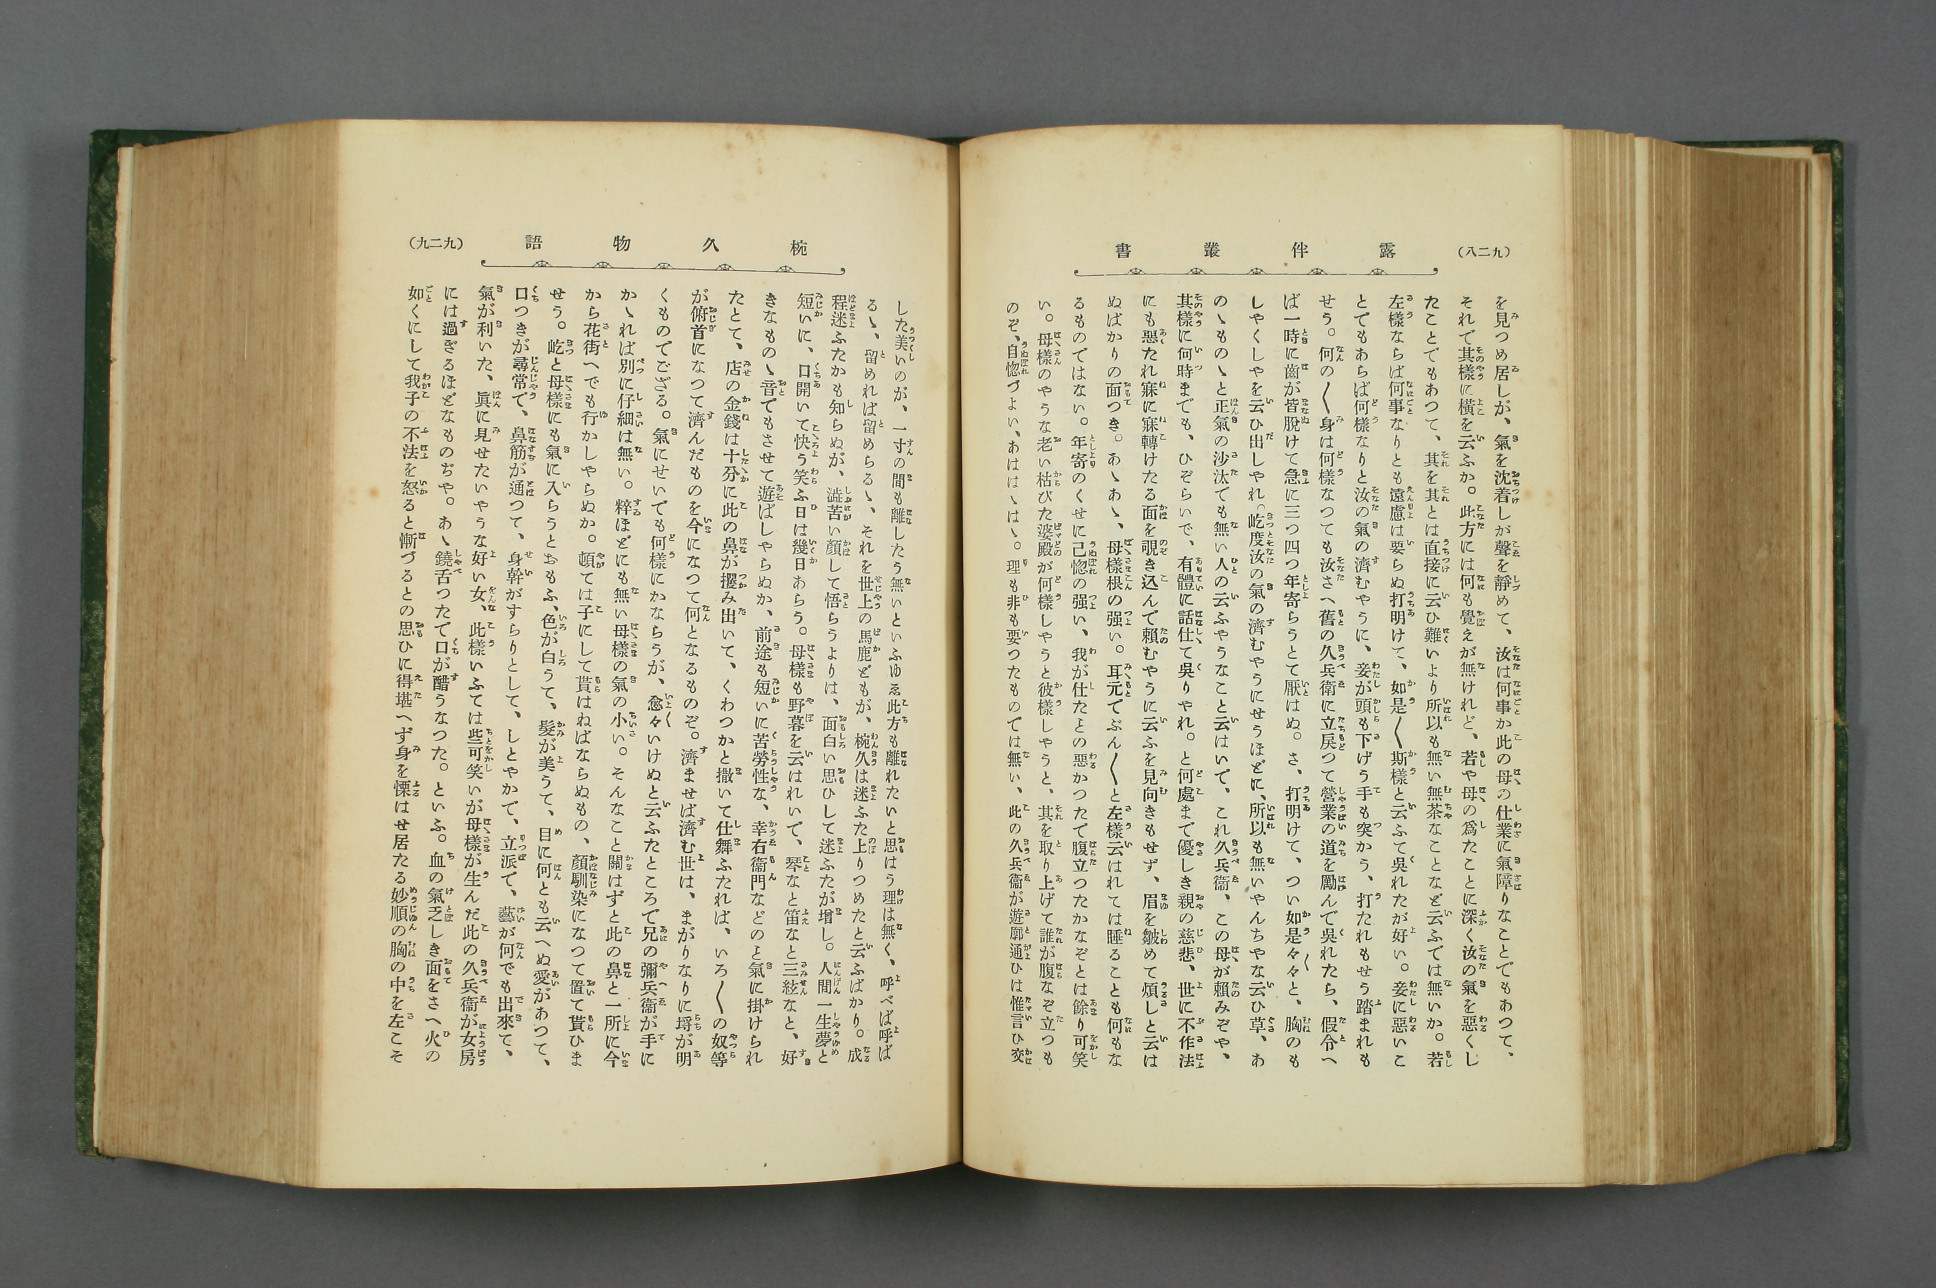 (九二八)
露伴叢書
を見つめ居しが、氣を沈着しが聲を靜めて、汝は何事か此の母の仕業に氣障りなことでもあつて、
それで其樣に橫を云ふか。此方には何も覺えが無けれど、若や母の爲たことに深く汝の氣を惡くし
たことでもあつて、其を其とは直接に云ひ難いより所以も無い無茶なことなど云ふでは無いか。若
左樣ならば何事なりとも遠慮は要らぬ打明けて、如是〱斯樣と云ふて吳れたが好い。妾に惡いこ
とでもあらば何樣なりと汝の氣の濟むやうに、妾が頭も下げう手も突かう、打たれもせう踏まれも
せう。何の〱身は何樣なつても汝さへ舊の久兵衛に立戻つて營業の道を勵んで吳れたら、假令へ
ば一時に齒が皆脫けて急に三つ四つ年寄らうとて厭はぬ。さ、打明けて、つい如是々々と、胸のも
しやくしやを云ひ出しやれ。屹度汝の氣の濟むやうにせうほどに、所以も無いやんちやな云ひ草、あ
のゝものゝと正氣の沙汰でも無い人の云ふやうなこと云はいで、これ久兵衞、この母が賴みぞや、
其樣に何時までも、ひぞらいで、有體に話仕て吳りやれ。と何處まで優しき親の慈悲、世に不作法
にも惡たれ寐に寐轉けたる面を覗き込んで賴むやうに云ふを見向きもせず、眉を皺めて煩しと云は
ぬばかりの面つき。あゝあゝ、母樣根の强い。耳元でぶん〱と左樣云はれては睡ることも何もな
るものではない。年寄のくせに己惚の强い、我が仕たとの惡かつたで腹立つたかなぞとは餘り可笑
い。母樣のやうな老い枯びた婆殿が何樣しやうと彼樣しやうと、其を取り上げて誰が腹なぞ立つも
のぞ、自惚づよい、あははゝはゝ。理も非も要つたものでは無い、此の久兵衞が遊廓通ひは惟言ひ交
(九二九)
椀久物語
した美いのが、一寸の間も離したう無いといふゆゑ此方も離れたいと思はう理は無く、呼べば呼ば
るゝ、留めれば留めらるゝ、それを世上の馬鹿どもが、椀久は迷ふた上りつめたと云ふばかり。成
程迷ふたかも知らぬが、澁苦い顏して悟らうよりは、面白い思ひして迷ふたが增し。人間一生夢と
短いに、口開いて快う笑ふ日は幾日あらう。母樣も野暮を云はれいで、琴なと笛なと三絃なと、好
きなものゝ音でもさせて遊ばしやらぬか、前途も短いに苦勞性な、幸右衞門などのと氣に掛けられ
たとて、店の金錢は十分に此の鼻が攫み出いて、くわつかと撒いて仕舞ふたれば、いろ〱の奴等
が俯首になつて濟んだものを今になつて何となるものぞ。濟ませば濟む世は、まがりなりに埒が明
くものでござる。氣にせいでも何樣にかならうが、愈々いけぬと云ふたところで兄の彌兵衞が手に
かゝれば別に仔細は無い。粹ほどにも無い母樣の氣の小い。そんなこと關はずと此の鼻と一所に今
から花街へでも行かしやらぬか。頓ては子にして貰はねばならぬもの、顏馴染になつて置て貰ひま
せう。屹と母樣にも氣に入らうとおもふ、色が白うて、髮が美うて、目に何とも云へぬ愛があつて、
口つきが尋常で、鼻筋が通つて、身幹がすらりとして、しとやかで、立派で、藝が何でも出來て、
氣が利いた、眞に見せたいやうな好い女、此樣いふては些可笑いが母樣が生んだ此の久兵衞が女房
には過ぎるほどなものぢや。あゝ鐃舌つたで口が醋うなつた。といふ。血の氣乏しき面をさへ火の
如くにして我子の不法を怒ると慚づるとの思ひに得堪へず身を慄はせ居たる妙順の胸の中を左こそ